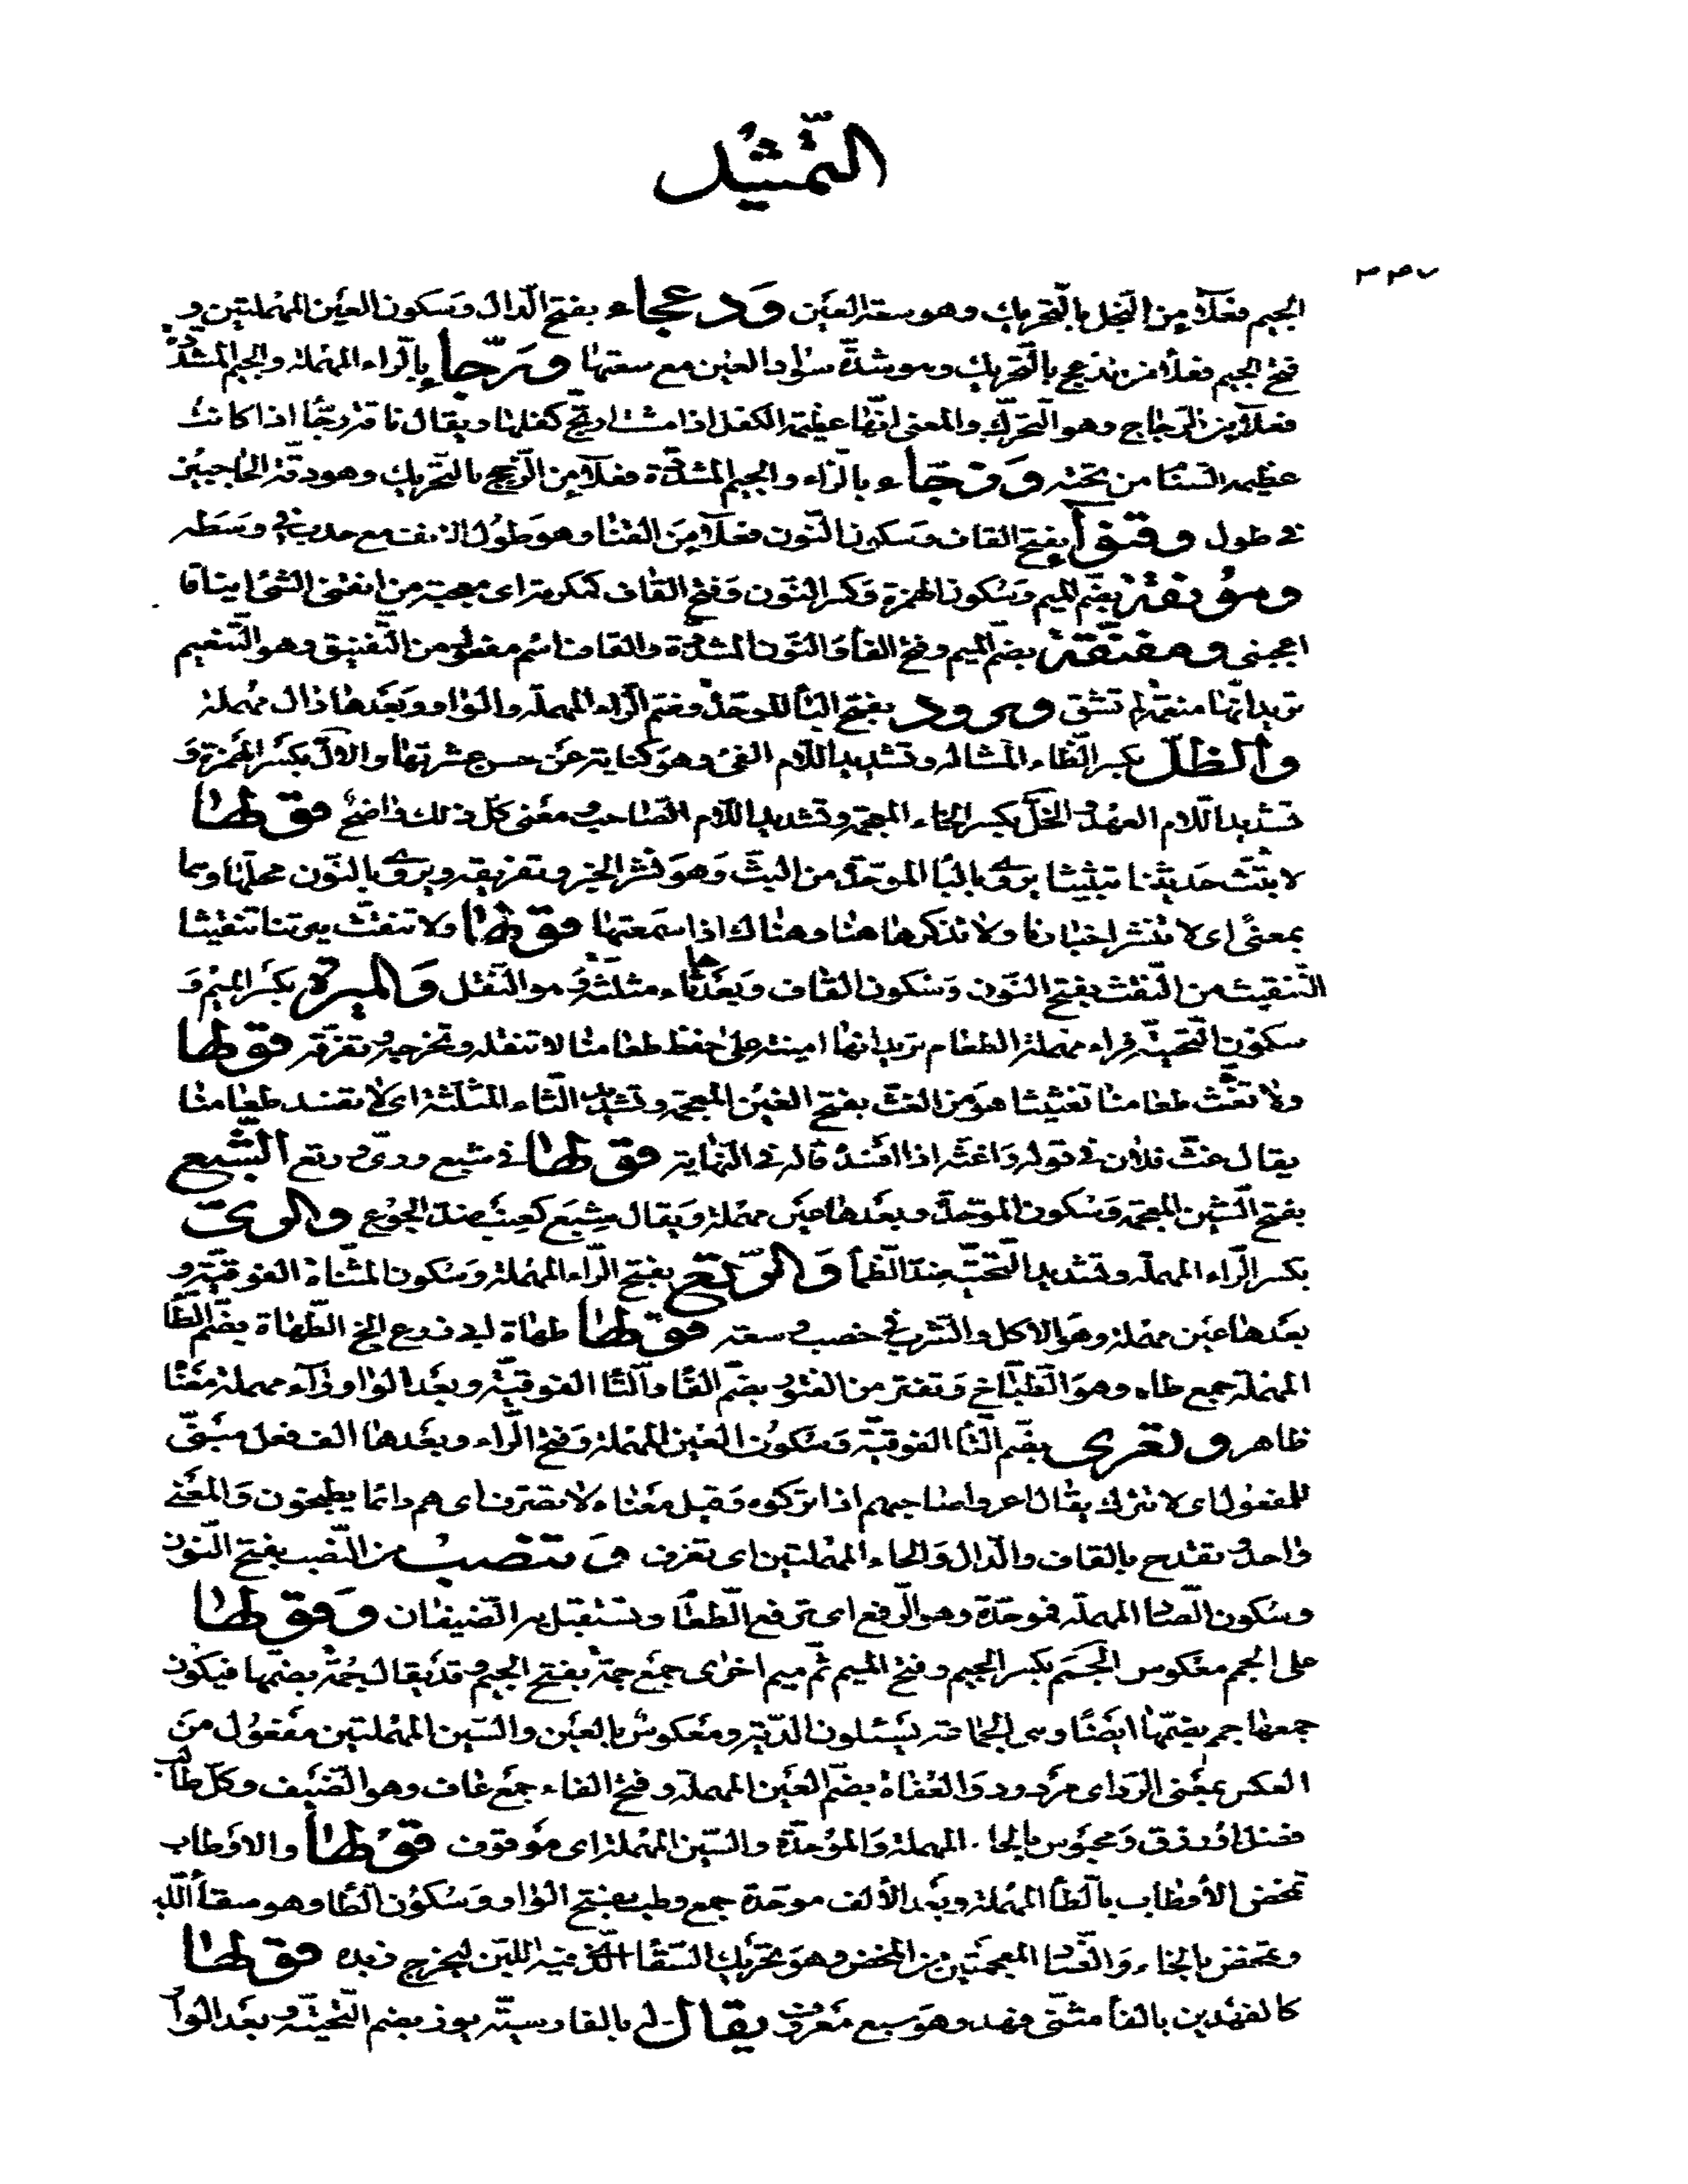 التمثيل
٣٣٧
الجيم فعلآء من النجل بالتحريك وهو سعة العين ودعجاء بفتح الدال وسكون العين المهملتين و
فتح الجيم فعلاء من الدعج بالتحريك وهو شدة سواد العين مع سعتها ورجاء بالراء المهملة والجيم المشددة
فعلآء من الرجاج وهو التحرك والمعنى انها عظيمة الكفل اذا مشت ارتج كفلها ويقال ناقة رجّاء اذا كانت
عظيمة السنام من تحته وزجاء بالزاء والجيم المشددة فعلآء من الزجج بالتحريك وهو دقة الحاجبين
في طول وقنوآء بفتح القاف وسكون النون فعلآء من القنا وهو طول الانف مع حدب في وسطه
ومؤنقة بضم الميم وسكون الهمزة وكسر النون وفتح القاف كمكرمة اى معجبة من انقنى الشئ ايناقا
اعجبنى ومفنقة بضم الميم وفتح الفاء والنون المشددة والقاف اسم مفعول من التفنيق وهو التنعيم
تريد انها منعمة لم تشق وبرود بفتح الباء الموحدة وضم الراء المهملة والواو وبعدها دال مهملة
والظل بكسر الظاء المشالة وتشديد اللام الفئ وهو كناية عن حسن عشرتها والال بكسر الهمزة و
تشديد اللام العهد والخل بكسر الخاء المعجمة وتشديد اللام الصاحب ومعنى كل ذلك واضح قولها
لا تبثث حديثنا تبثيثا يروى بالباء الموحدة من البث وهو نشر الخبر وتفريقه ويروى بالنون محلها وهما
بمعنى اى لا تنشر اخبارنا ولا تذكرها هنا وهناك اذا سمعتها قولها ولا تنقث ميرتنا تنقيثا
التنقيث من النقث بفتح النون وسكون القاف وبعدها ثاء مثلثة وهو النقل والميرة بكسر الميم و
سكون التحتية فراء مهملة الطعام تريد انها امينة على حفظ طعامنا لا تنقله وتخرجه وتفرقه قولها
ولا تغثث طعامنا تغثيثا هو من الغث بفتح الغين المعجمة وتشديد الثاء المثلثة اى لا تفسد طعامنا
يقال غث فلان في قوله واغثه اذا افسده قاله في النهاية قولها في شبع ورى ورتع الشبع
بفتح الشين المعجمة وسكون الموحدة وبعدها عين مهملة ويقال شبع كعنب ضد الجوع والرى
بكسر الراء المهملة وتشديد التحتية ضد الظمأ والرتع بفتح الراء المهملة وسكون المثناة الفوقية و
بعدها عين مهملة وهو الاكل والشرب في خصب وسعة قولها طهاة ابي زرع الخ الطهاة بضم الطاء
المهملة جمع طاه وهو الطباخ وتفتر من الفتور بضم الفاء والتاء الفوقية وبعد الواو راء مهملة معناه
ظاهر وتعرى بضم التاء الفوقية وسكون العين المهملة وفتح الراء وبعدها الف فعل مبنى
للمفعول اى لا تترك يقال اعروا صاحبهم اذا تركوه وقيل معناه لا تصرف اى هم دائما يطبخون والمعنى
واحد وتقدح بالقاف والدال والحاء المهملتين اى تغرف وتنصب من النصب بفتح النون
وسكون الصاد المهملة فموحدة وهو الرفع اى ترفع الطعام وتستقبل به الضيفان وقولها
على الجمم معكوس الجمم بكسر الجيم وفتح الميم ثم ميم اخرى جمع جمة بفتح الجيم وقد يقال جمة بضمها فيكون
جمعها جمم بضمها ايضا وهى الجماعة يسئلون الدية ومعكوس بالعين والسين المهملتين مفعول من
العكس بمعنى الرد اى مردود والعفاة بضم العين المهملة وفتح الفاء جمع عاف وهو الضيف وكل طالب
فضل او رزق ومحبوس بالحاء المهملة والموحدة والسين المهملة اى موقوف قولها والاوطاب
تمخض الاوطاب بالطاء المهملة وبعد الالف موحدة جمع وطب بفتح الواو وسكون الطاء وهو سقاء اللبن
وتمخض بالخاء والضاد المعجمتين من المخض وهو تحريك السقاء الذى فيه اللبن ليخرج زبده قولها
كالفهدين بالفاء مثنى فهد وهو سبع معروف يقال له بالفارسية يوز بضم التحتية وبعد الواو